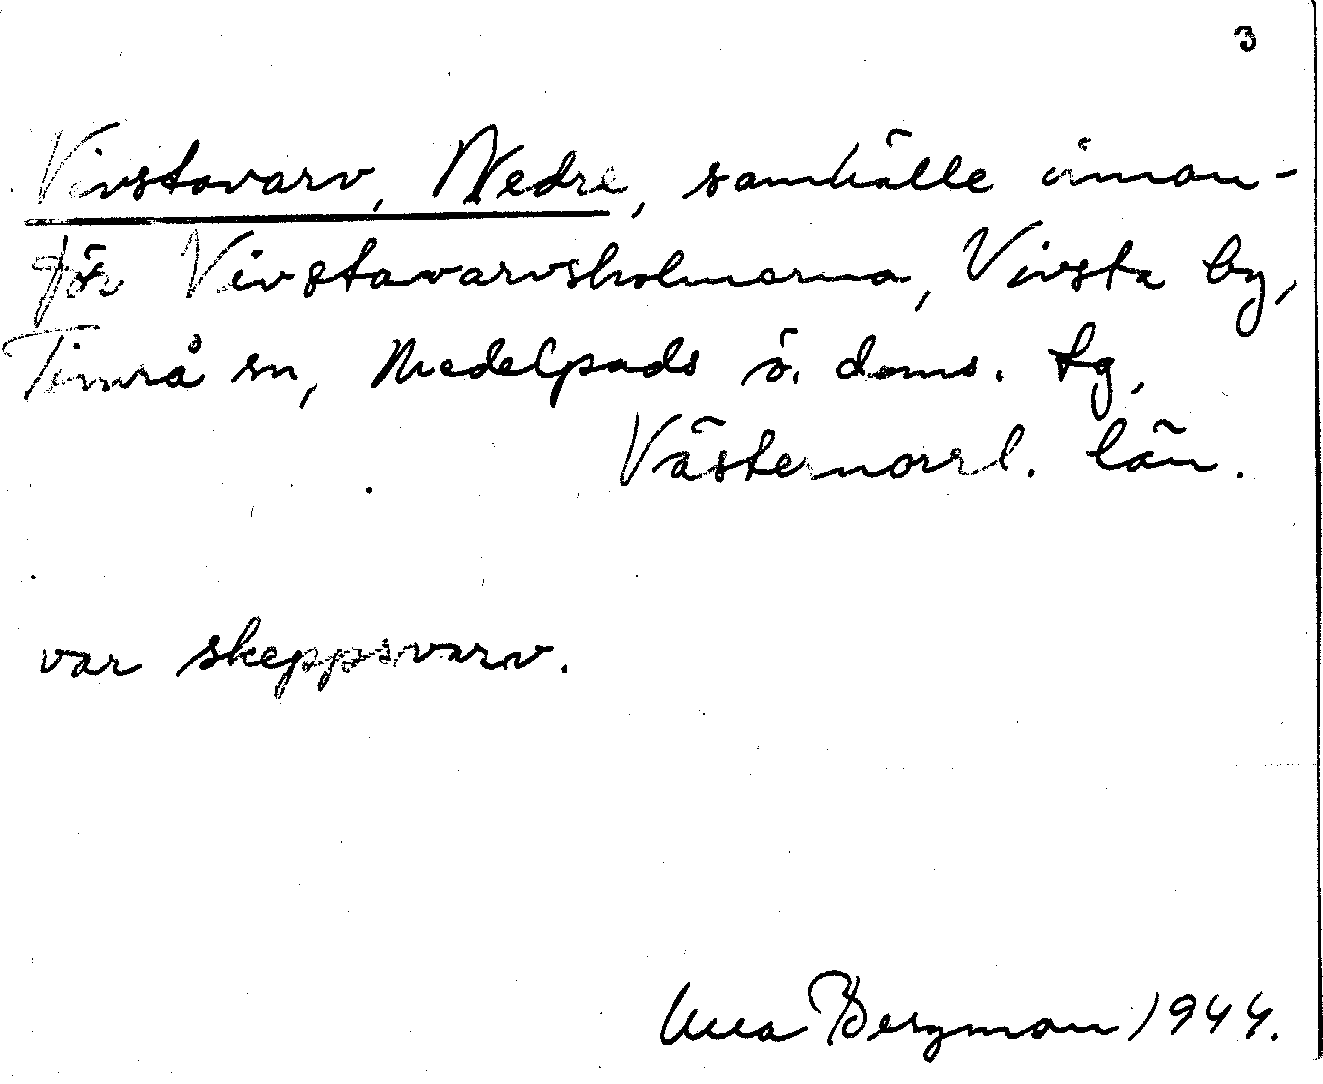 3
Vivstavarv, Nedre, samhälle innan-
för Vivstavarvsholmarna, Vivsta by,
Timrå sn, Medelpads ö. doms. tg,
Västernorrl. län.
var skeppsvarv.
Bergman 1944.